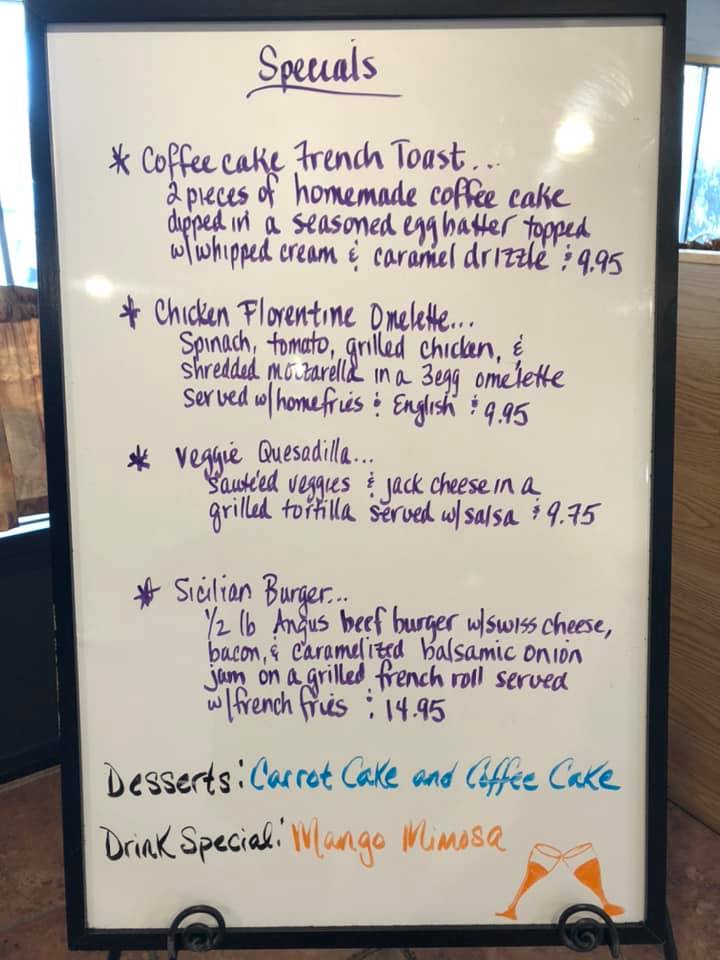 Specials
* Coffee cake French Toast...
2 pieces of homemade coffee cake
dipped in a seasoned egg batter topped
w/whipped cream & caramel drizzle $9.95
* Chicken Florentine Omelette...
Spinach, tomato, grilled chicken, &
shredded mozzarella in a 3egg omelette
served w/homefries & English $9.95
* Veggie Quesadilla...
Sauteéd veggies & jack cheese in a
grilled tortilla served w/salsa $9.75
* Sicilian Burger...
1/2 lb Angus beef burger w/swiss cheese,
bacon, & caramelized balsamic onion
jam on a grilled french roll served
w/french fries $14.95
Desserts: Carrot Cake and Coffee Cake
Drink Special: Mango Mimosa